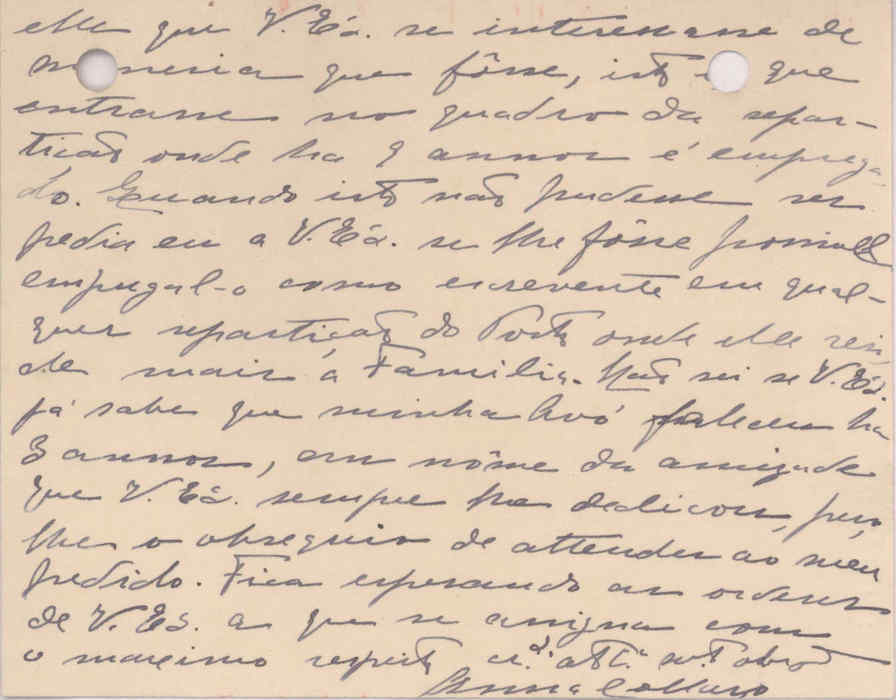 elle que V. Exa. se interessasse de
maneira que fôsse, isto é que
entrasse no quadro da repar-
tição onde ha 9 annos é emprega-
do. Quando isto não pudesse ser
pedia eu a V. Exa. se lhe fôsse possivel
empregal-o como escrevente em qual-
quer repartição do Porto onde elle resi-
de mais a Familia. Não sei se V. Exa.
já sabe que minha Avó faleceu ha
3 annos, em nôme da amizade
que V. Exa. sempre lhe dedicou, peço
lhe o obsequio de attender ao meu
pedido. Fica esperando as ordens
de V. Exa. a que se assigna com
o maximo respeito cr.ª att.ª
Anna